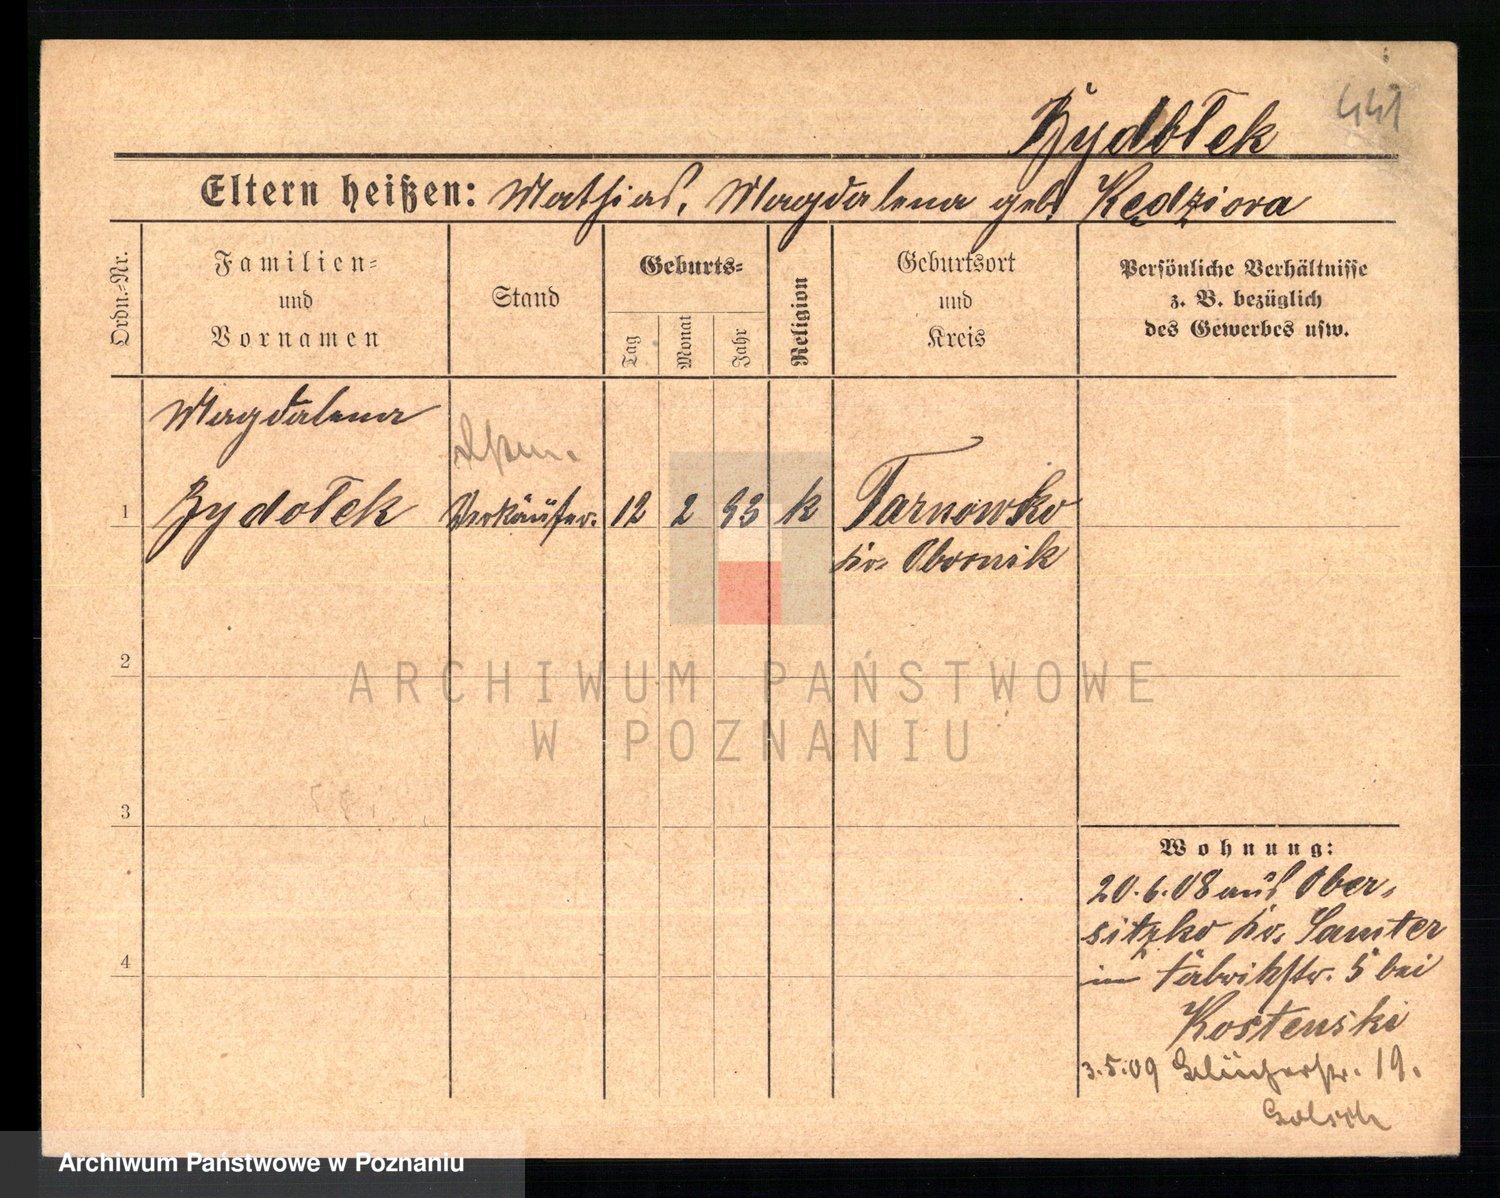 441
Żydołek
Eltern heißen: Mathias, Magdalena geb. Kędziora
Ordn.-Nr.
Familien-
und
Vornamen
Stand
Geburts-
Tag
Monat
Jahr
Religion
Geburtsort
und
Kreis
Persönliche Verhältnisse
z. B. bezüglich
des Gewerbes usw.
Magdalena
1 Zydołek Verkäufer. 12 2 93 k Tarnowko
Kr. Obornik
2
ARCHIWUM PAŃSTWOWE
W POZNANIU
3
Wohnung:
20.6.08 aus Ober-
sitzko Kr. Samter
in Fabrikstr. 5 bei
Kostenski
4
3.5.09 Blücherstr. 19.
Archiwum Państwowe w Poznaniu